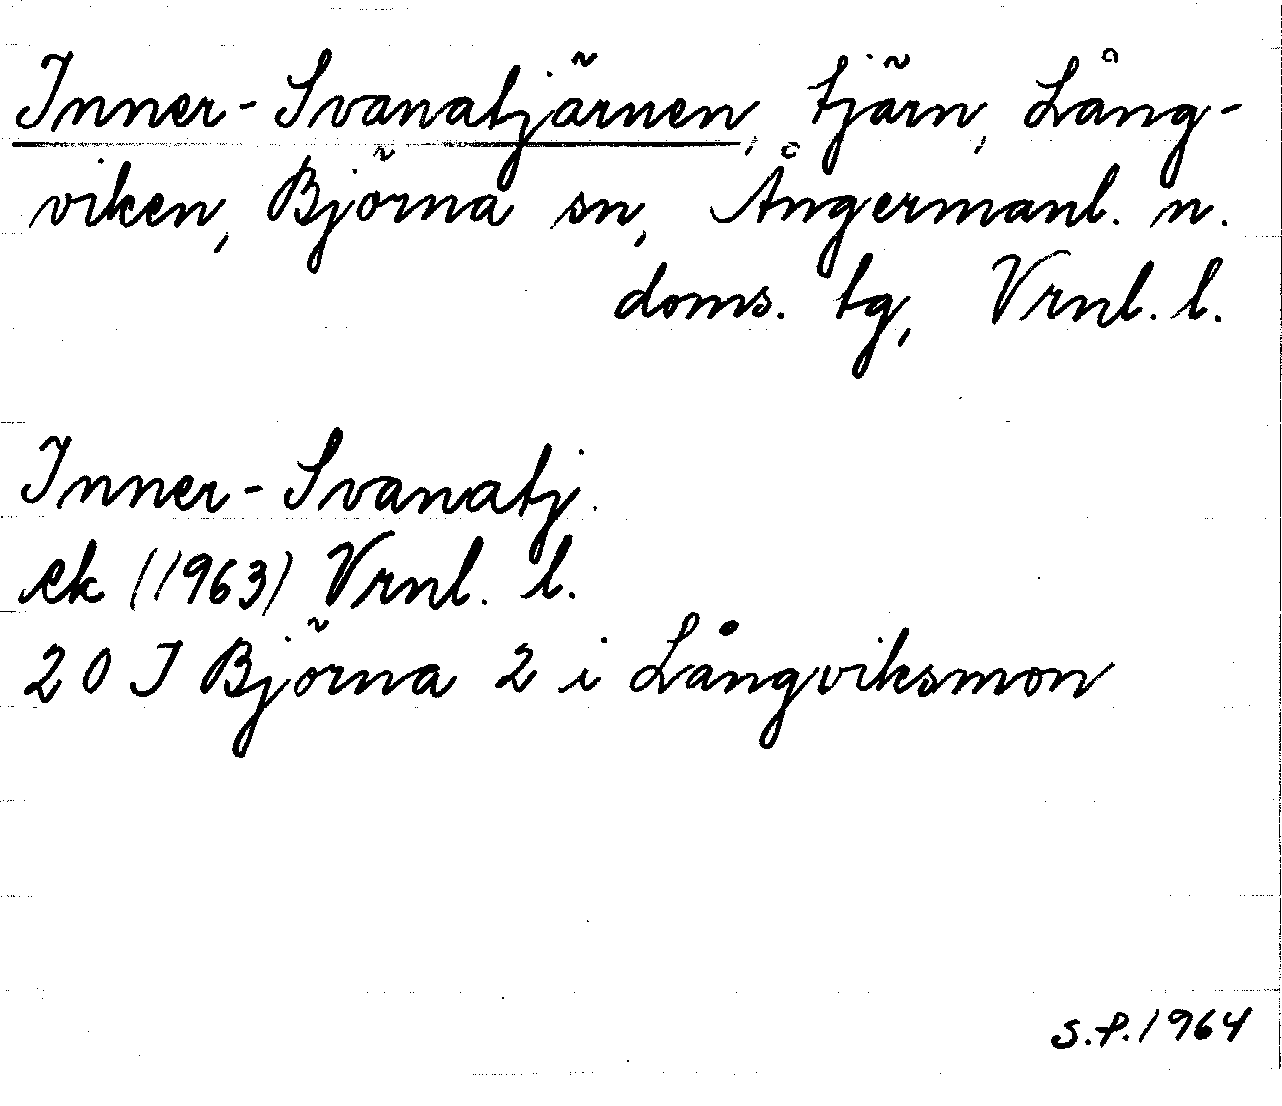 Inner-Svanatjärnen, tjärn, Lång-
viken, Björna sn, Ångermanl. n.
doms. tg, Vrnl. l.
Inner-Svanatj.
ek (1963) Vrnl. l.
20 I Björna 2 i Långviksmon
S.P. 1964